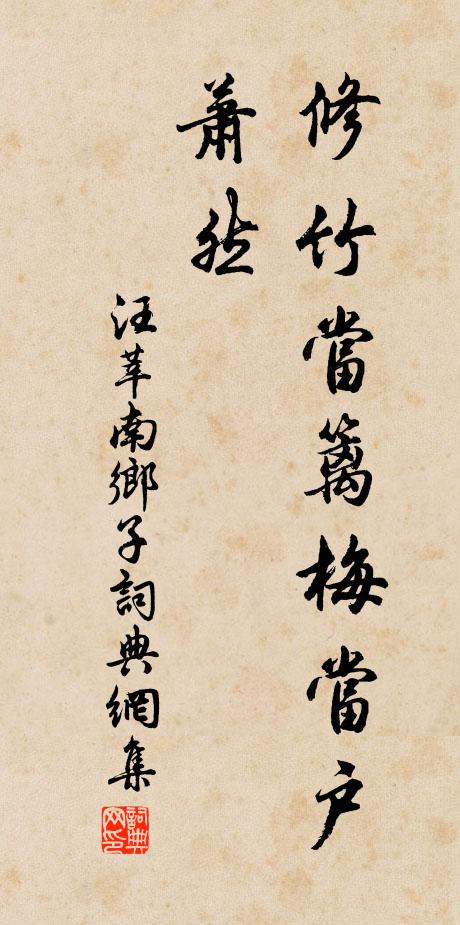 修竹當篱梅當户
蕭然
汪莘南鄉子詞典網集
詞典网印